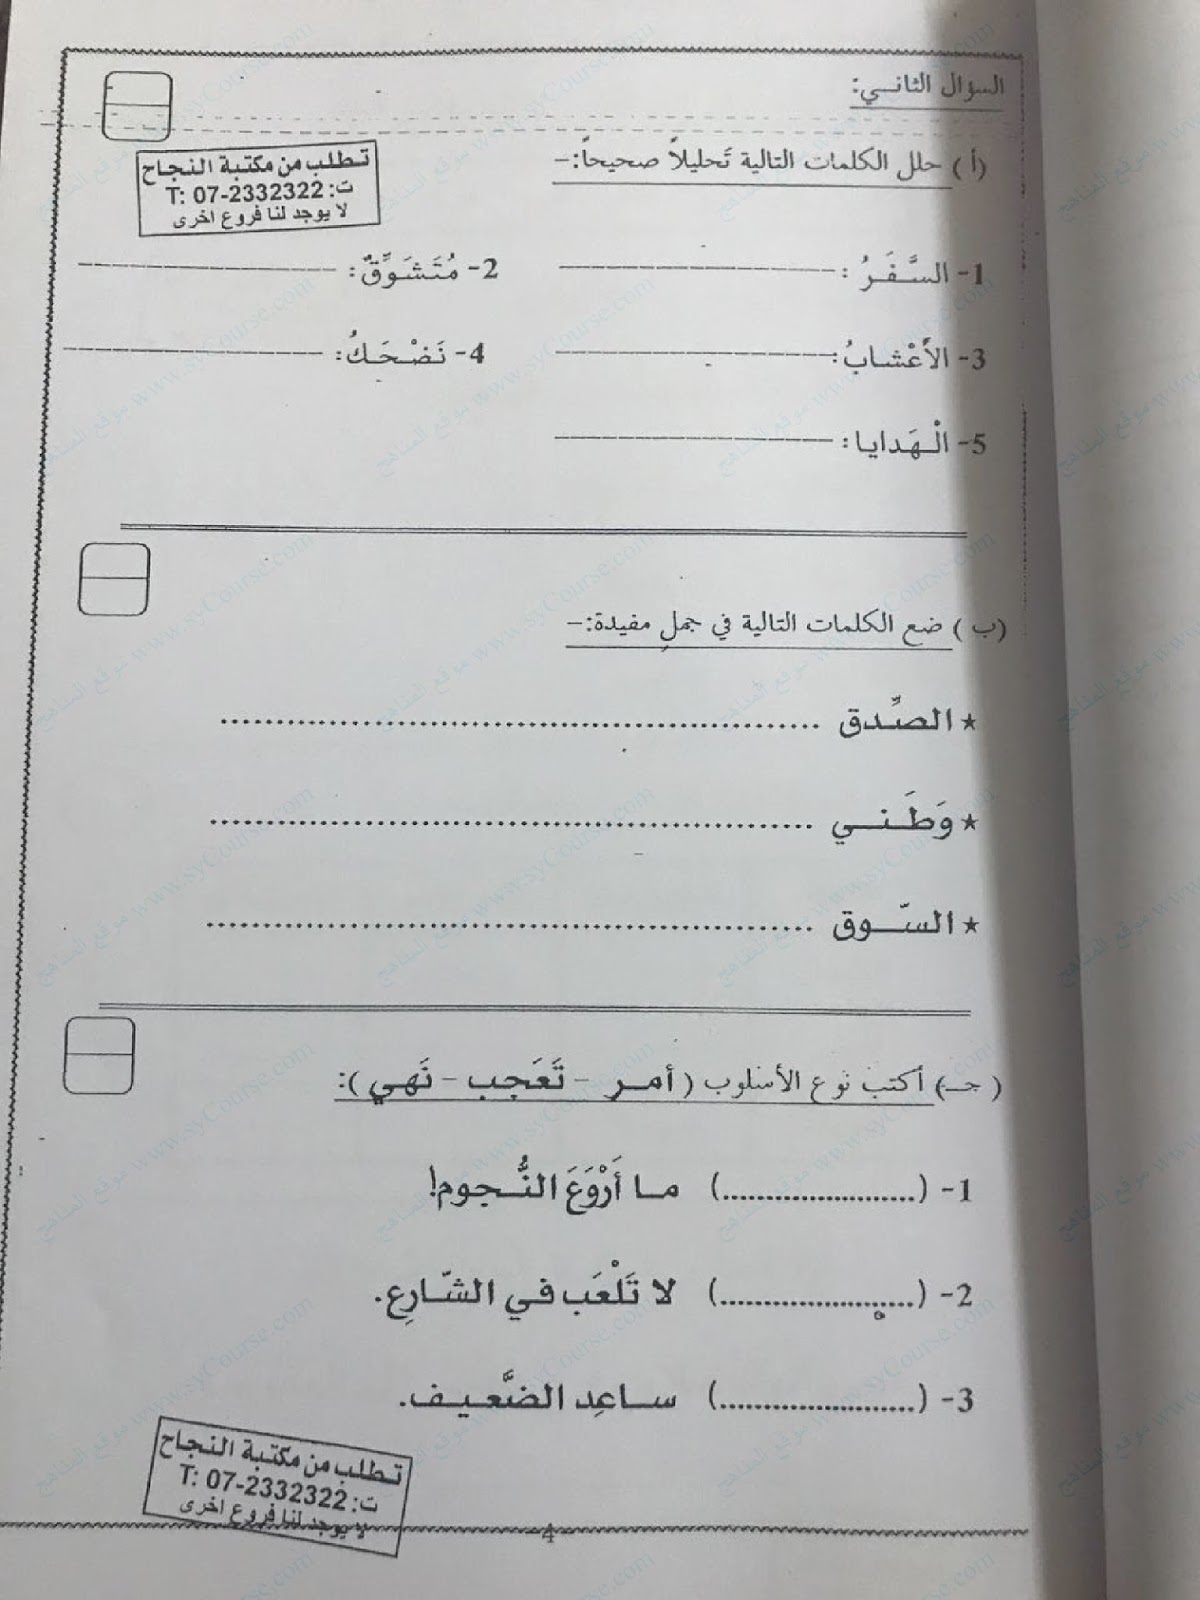 السؤال الثاني:
تطلب من مكتبة النجاح
ت: T: 07-2332322
لا يوجد لنا فروع اخرى
(أ) حلل الكلمات التالية تَحليلاً صحيحاً:-
1- السَّفَرُ : ------------ 2- مُتَشَوِّقٌ: ------------
3- الأَعْشابُ: ------------ 4- نَضْحَكُ: ------------
5- الْهَدايا: ------------
(ب) ضع الكلمات التالية في جملٍ مفيدة:-
★ الصِّدق ............................................................
★ وَطَني ............................................................
★ السّوق ............................................................
(جـ) أكتب نوع الأسلوب ( أمر - تَعَجب - نَهي ):
1- (......................) ما أَرْوَعَ النُّجوم!
2- (......................) لا تَلْعَب في الشّارِع.
3- (......................) ساعِد الضَّعيف.
تطلب من مكتبة النجاح
ت: T: 07-2332322
لا يوجد لنا فروع اخرى
-4-
موقع المناهج www.syCourse.com